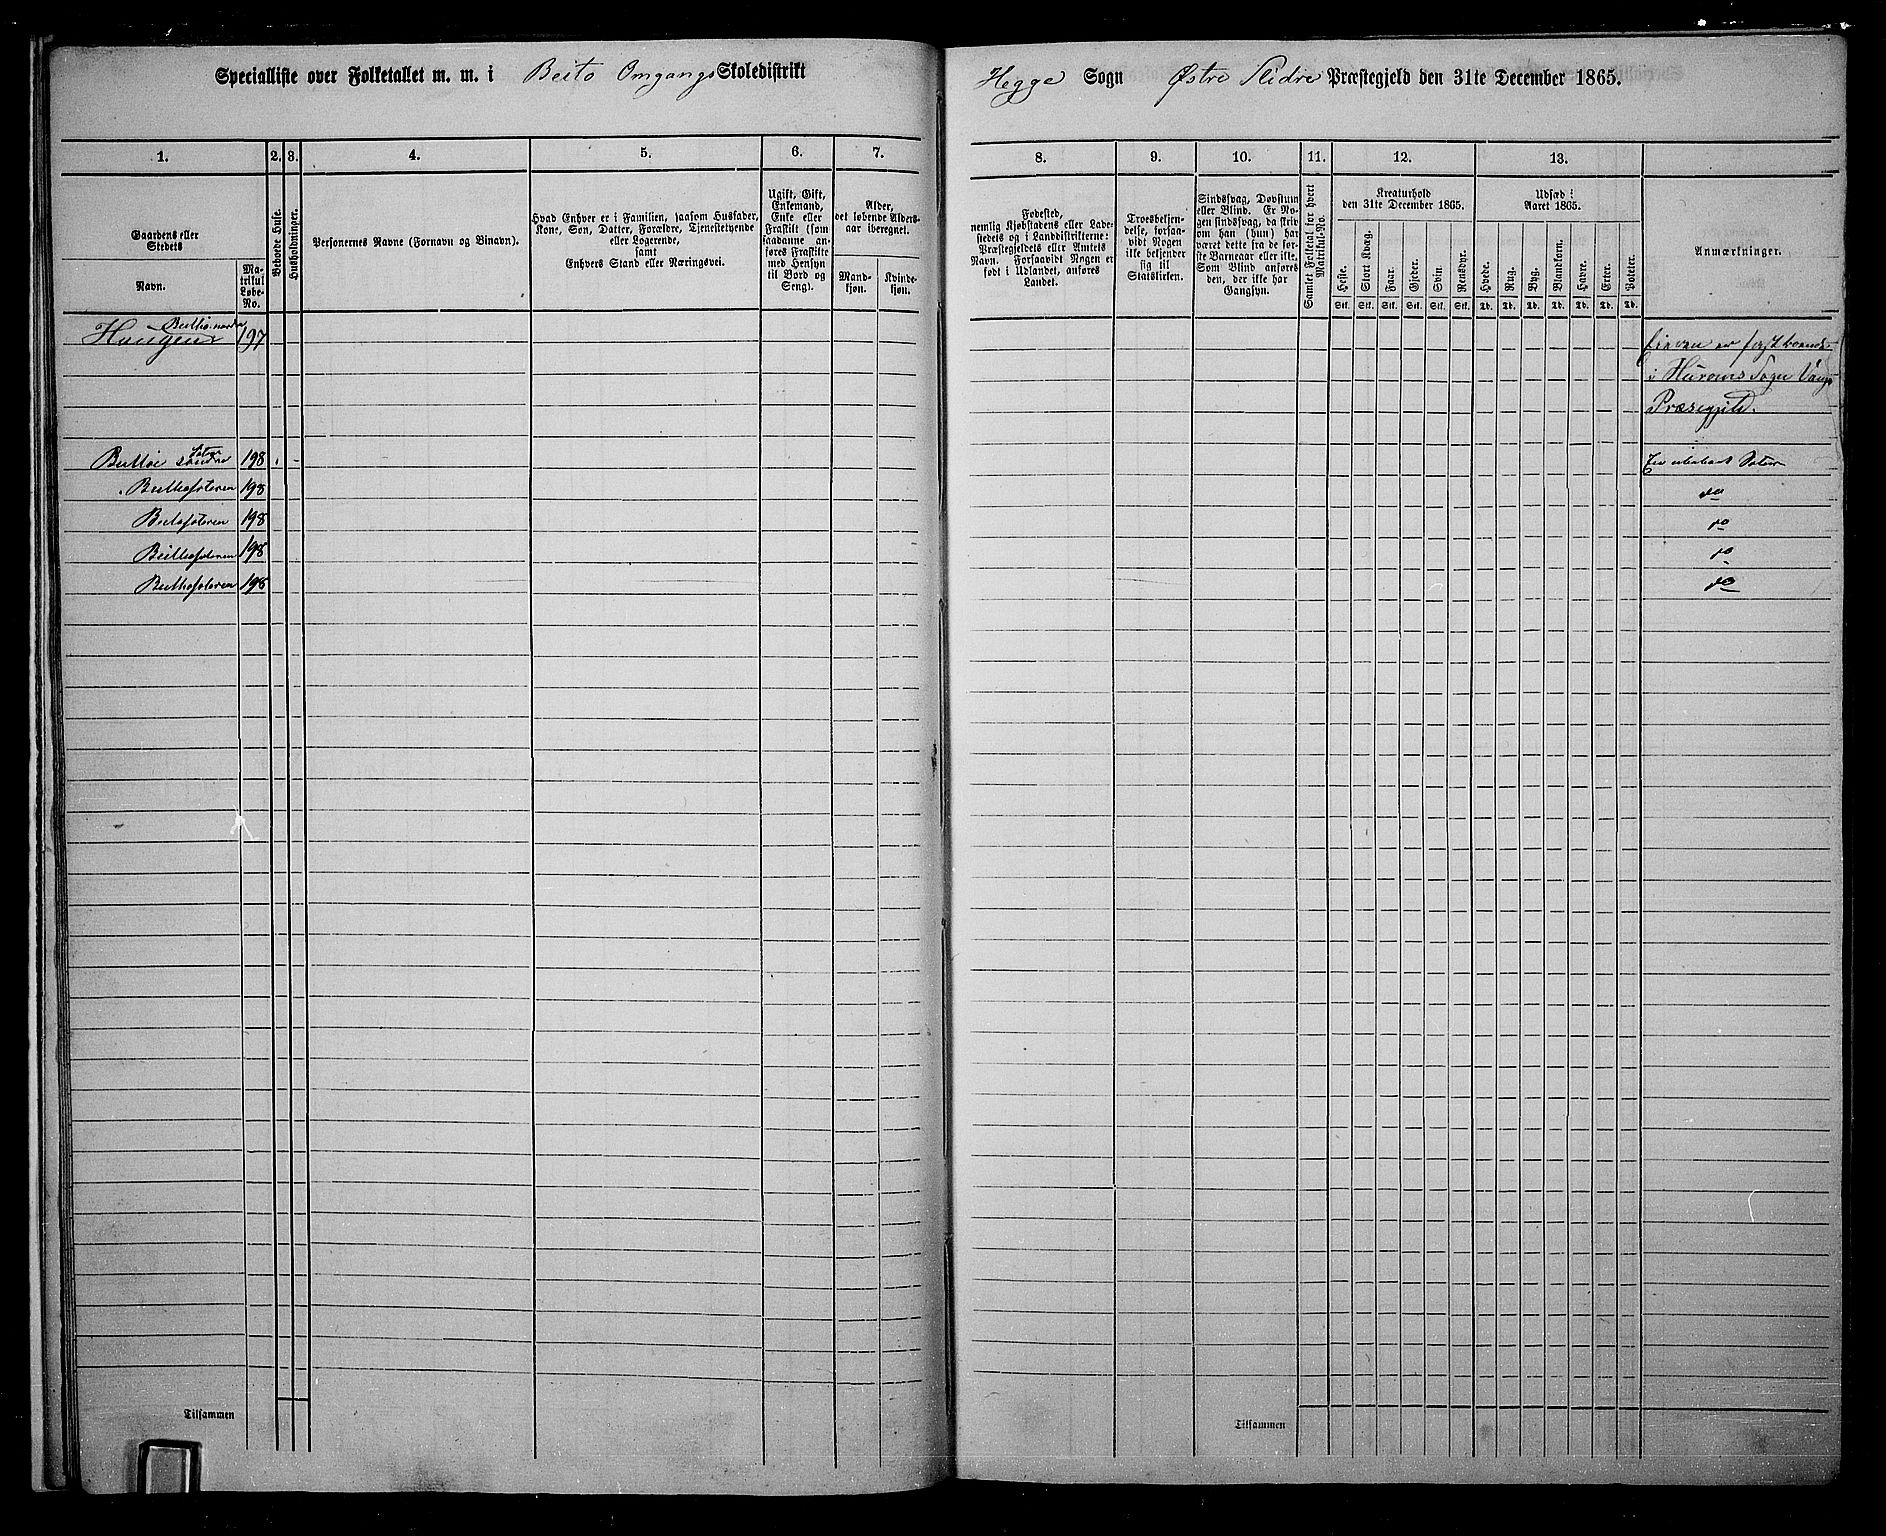 Specialliste over Folketallet m. m. i Beito Omgangs Skoledistrikt
Hegge Sogn Østre Slidre Præstegjeld den 31te December 1865.
1. 2. 3. 4. 5. 6. 7.
Gaardens eller
Stedets
Navn.
Ma-
trikul
Løbe-
No.
Beboede Huse.
Husholdninger.
Personernes Navne (Fornavn og Binavn).
Hvad Enhver er i Familien, saasom Husfader,
Kone, Søn, Datter, Forældre, Tjenestetyende
eller Logerende,
samt
Enhvers Stand eller Næringsvei.
Ugift, Gift,
Enkemand,
Enke eller
Fraskilt (som
saadanne an-
føres Fraskilte
med Hensyn
til Bord og
Seng).
Alder,
det løbende Alders-
aar iberegnet.
Mand-
kjøn.
Kvinde-
kjøn.
8. 9. 10. 11. 12. 13.
Fødested,
nemlig Kjøbstadens eller Lade-
stedets og i Landdistrikterne:
Præstegjeldets eller Amtets
Navn. Forsaavidt Nogen er
født i Udlandet, anføres
Landet.
Troesbekjen-
delse, forsaa-
vidt Nogen
ikke bekjender
sig til
Statskirken.
Sindssvag, Døvstum
eller Blind. Er No-
gen sindssvag, da skriv
om han (hun) har
været dette fra de før-
ste Barneaar eller ikke.
Som Blind anføres
den, der ikke har
Gangsyn.
Samlet Folketal for hvert
Matrikul-No.
Kreaturhold
den 31te December 1865.
Heste. Stort Kvæg. Faar. Gjeder. Svin. Rensdyr.
Stk. Stk. Stk. Stk. Stk. Stk.
Udsæd i
Aaret 1865.
Hvede. Rug. Byg. Blandkorn. Havre. Erter. Poteter.
Td. Td. Td. Td. Td. Td. Td.
Anmærkninger.
Beitho nordre
Haugen 197
Eieren er fast boende
i Hurums Sogn Vangs
Præsegjeld.
Beithoe søndre 198 En ubeboet Sæter
Beithosæteren 198 do
Beitosæteren 198 do
Beithosæteren 198 do
Beithosæteren 198 do
Tilsammen
Tilsammen